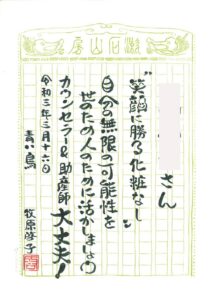 漱石山房
さん
"笑顔に勝る化粧なし"
自分の無限の可能性を
世のため人のために活かしましょう
カウンセラー&助産師 大丈夫!
令和三年三月十六日
青い鳥 牧原